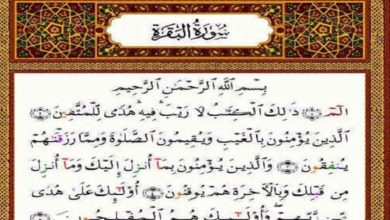 سُورَةُ الْبَقَرَةِ
بِسْمِ اللَّهِ الرَّحْمَٰنِ الرَّحِيمِ
الٓمٓ ۝١ ذَٰلِكَ الْكِتَٰبُ لَا رَيْبَ ۛ فِيهِ ۛ هُدًى لِّلْمُتَّقِينَ ۝٢
الَّذِينَ يُؤْمِنُونَ بِالْغَيْبِ وَيُقِيمُونَ الصَّلَوٰةَ وَمِمَّا رَزَقْنَٰهُمْ
يُنفِقُونَ ۝٣ وَالَّذِينَ يُؤْمِنُونَ بِمَآ أُنزِلَ إِلَيْكَ وَمَآ أُنزِلَ
مِن قَبْلِكَ وَبِالْءَاخِرَةِ هُمْ يُوقِنُونَ ۝٤ أُو۟لَٰٓئِكَ عَلَىٰ هُدًى
مِّن رَّبِّهِمْ ۖ وَأُو۟لَٰٓئِكَ هُمُ الْمُفْلِحُونَ